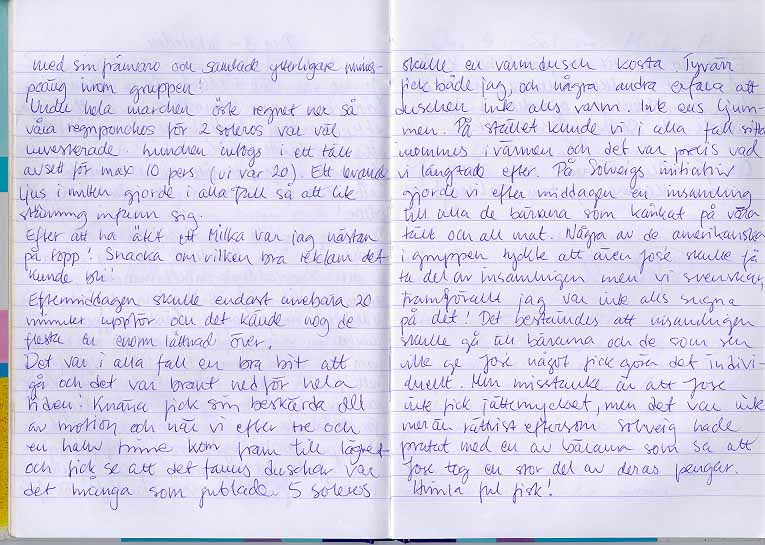 med sin frånvaro och samlade ytterligare minus-
poäng inom gruppen!
Under hela marchen öste regnet ner så
våra regnponchos för 2 soleros var väl
investerade. Lunchen intogs i ett tält
avsett för max 10 pers (vi var 20). Ett levande
ljus i mitten gjorde i alla fall så att lite
stämning infann sig.
Efter att ha ätit ett Milka var jag nästan
på topp! Snacka om vilken bra reklam det
kunde bli!
Eftermiddagen skulle endast innebära 20
minuter uppför och det kände nog de
flesta en enorm lättnad över.
Det var i alla fall en bra bit att
gå och det var brant nedför hela
tiden! Knäna fick sin beskärda del
av motion och när vi efter tre och
en halv timme kom fram till lägret
och fick se att det fanns duschar var
det många som jublade. 5 soleros
skulle en varmdusch kosta. Tyvärr
fick både jag, och några andra erfara att
duschen inte alls varm. Inte ens ljum-
men. På stället kunde vi i alla fall sitta
inomhus i värmen och det var precis vad
vi längtade efter. På Solveigs initiativ
gjorde vi efter middagen en insamling
till alla de bärarna som kånkat på våra
tält och all mat. Några av de amerikanska
i gruppen tyckte att även José skulle få
ta del av insamlingen men vi svenskar,
framförallt jag var inte alls sugna
på det! Det bestämdes att insamlingen
skulle gå till bärarna och de som sen
ville ge José något fick göra det indivi-
duellt. Min misstanke är att José
inte fick jättemycket, men det var inte
mer än rättvist eftersom Solveig hade
pratat med en av bärarna som sa att
José tog en stor del av deras pengar.
Himla ful fisk!